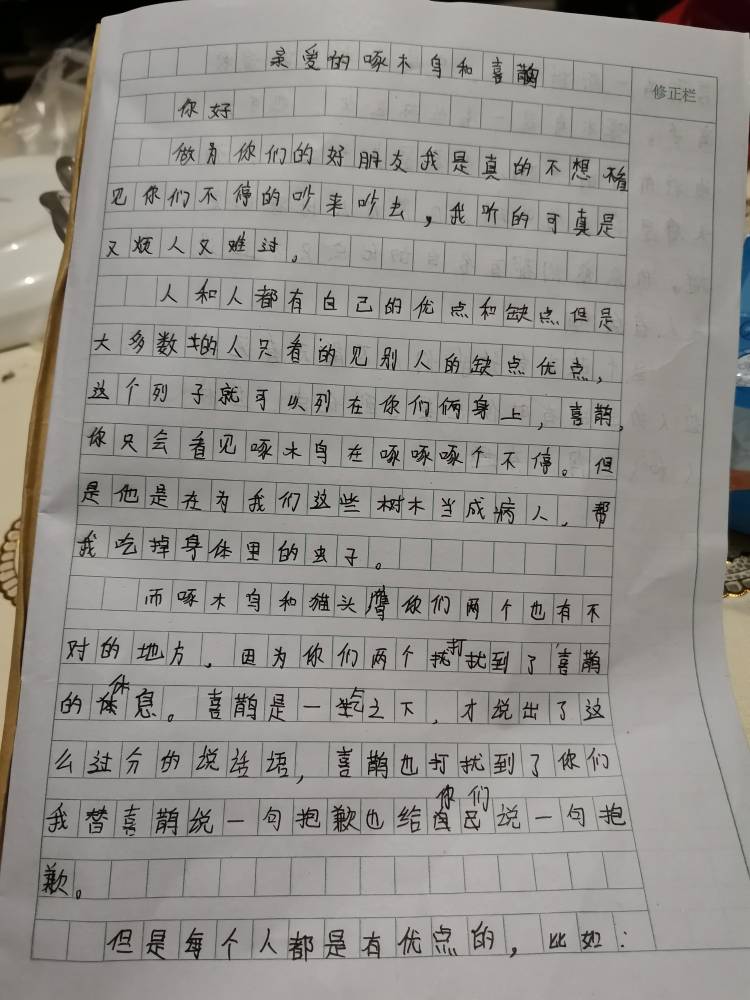 亲爱的啄木鸟和喜鹊
修正栏
你好
做为你们的好朋友我是真的不想看
见你们不停的吵来吵去，我听的可真是
又烦人又难过。
人和人都有自己的优点和缺点但是
大多数的人只看的见别人的缺点优点，
这个列子就可以列在你们俩身上，喜鹊，
你只会看见啄木鸟在啄啄啄个不停。但
是他是在为我们这些树木当成病人，帮
我吃掉身体里的虫子。
而啄木鸟和猫头鹰你们两个也有不
对的地方，因为你们两个打扰到了喜鹊
的休息。喜鹊是一气之下，才说出了这
么过分的说话语，喜鹊也打扰到了你们
我替喜鹊说一句抱歉也给你们说一句抱
歉。
但是每个人都是有优点的，比如：